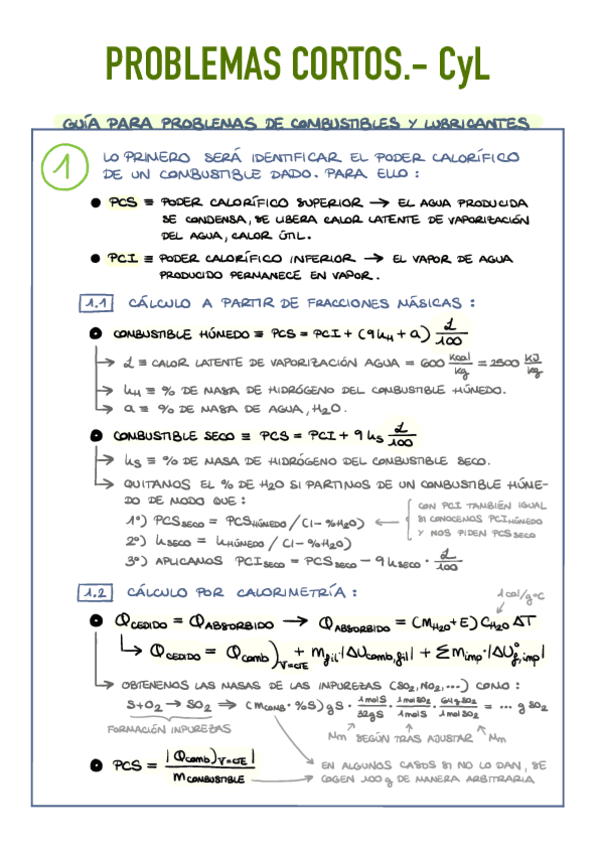 PROBLEMAS CORTOS.- CyL
GUÍA PARA PROBLEMAS DE COMBUSTIBLES Y LUBRICANTES
1 LO PRIMERO SERÁ IDENTIFICAR EL PODER CALORÍFICO
DE UN COMBUSTIBLE DADO. PARA ELLO:
● PCS ≡ PODER CALORÍFICO SUPERIOR → EL AGUA PRODUCIDA
SE CONDENSA, SE LIBERA CALOR LATENTE DE VAPORIZACIÓN
DEL AGUA, CALOR ÚTIL.
● PCI ≡ PODER CALORÍFICO INFERIOR → EL VAPOR DE AGUA
PRODUCIDO PERMANECE EN VAPOR.
1.1 CÁLCULO A PARTIR DE FRACCIONES MÁSICAS:
● COMBUSTIBLE HÚMEDO ≡ PCS = PCI + (9 hH + a) L/100
→ L ≡ CALOR LATENTE DE VAPORIZACIÓN AGUA = 600 Kcal/kg = 2500 KJ/kg
→ hH ≡ % DE MASA DE HIDRÓGENO DEL COMBUSTIBLE HÚMEDO.
→ a ≡ % DE MASA DE AGUA, H2O.
● COMBUSTIBLE SECO ≡ PCS = PCI + 9 hS L/100
→ hS ≡ % DE MASA DE HIDRÓGENO DEL COMBUSTIBLE SECO.
→ QUITAMOS EL % DE H2O SI PARTIMOS DE UN COMBUSTIBLE HÚME-
DO DE MODO QUE:
1º) PCSSECO = PCSHÚMEDO / (1 - %H2O) ←
2º) hSECO = hHÚMEDO / (1 - %H2O)
3º) APLICAMOS PCISECO = PCSSECO - 9 hSECO · L/100
CON PCI TAMBIÉN IGUAL
SI CONOCEMOS PCIHÚMEDO
Y NOS PIDEN PCSSECO
1.2 CÁLCULO POR CALORIMETRÍA:
1 cal/g·ºC
● QCEDIDO = QABSORBIDO → QABSORBIDO = (MH2O + E) CH2O ΔT
↳ QCEDIDO = Qcomb)V=CTE + mfil·|ΔUcomb,fil| + Σmimp·|ΔUºf,imp|
→ OBTENEMOS LAS MASAS DE LAS IMPUREZAS (SO2, NO2, ...) COMO:
S + O2 → SO2 → (mCOMB · %S) g S · 1 mol S/32 g S · 1 mol SO2/1 mol S · 64 g SO2/1 mol SO2 = ... g SO2
FORMACIÓN IMPUREZAS
Mm SEGÚN TRAS AJUSTAR Mm
● PCS = |Qcomb)V=CTE| / mCOMBUSTIBLE
→ EN ALGUNOS CASOS SI NO LO DAN, SE
COGEN 100 g DE MANERA ARBITRARIA